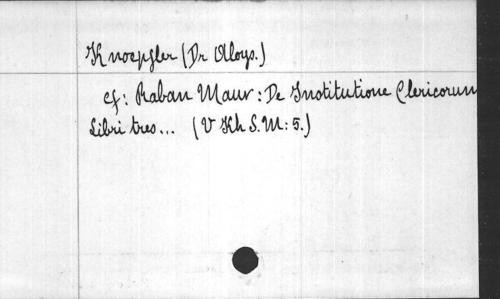 Knoepfler (Dr Aloys.)
cf: Raban Maur: De Institutione Clericorum
Libri tres... (V Kh S.M: 5.)